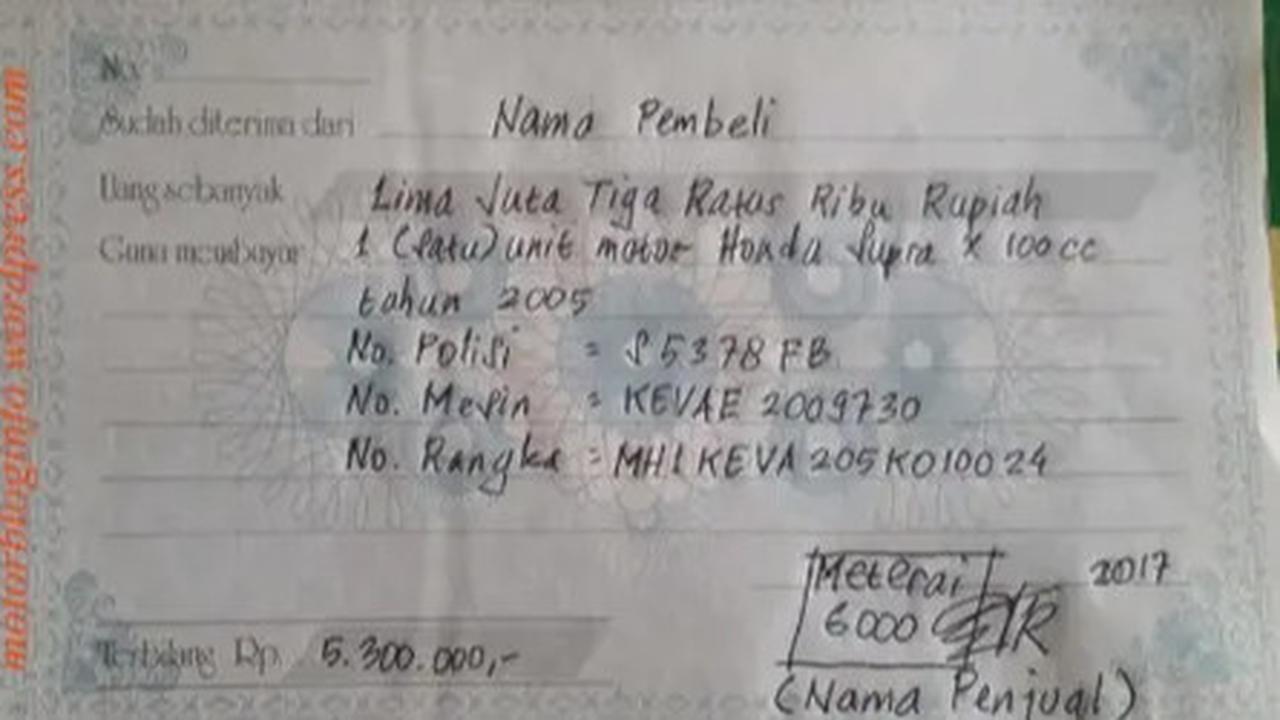 No.
Sudah diterima dari Nama Pembeli
Uang sebanyak Lima Juta Tiga Ratus Ribu Rupiah
Guna membayar 1 (Satu) unit motor Honda Supra X 100 cc
tahun 2005
No. Polisi = S 5378 FB
No. Mesin = KEVAE 2009730
No. Rangka = MH1KEVA205K010024
2017
Meterai
6000
Terbilang Rp. 5.300.000,-
(Nama Penjual)
motorbloginfo.wordpress.com